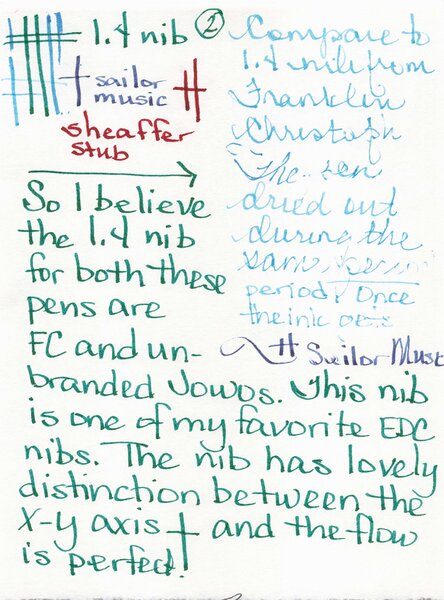 1.4 nib ②
sailor
music
sheaffer
stub
Compare to
1.4 nib from
Franklin
Christoph
The pen
dried out
during the
same
period. Once
the ink
Sailor Music
So I believe
the 1.4 nib
for both these
pens are
FC and un-
branded Jowos. This nib
is one of my favorite EDC
nibs. The nib has lovely
distinction between the
X-y axis + and the flow
is perfect!